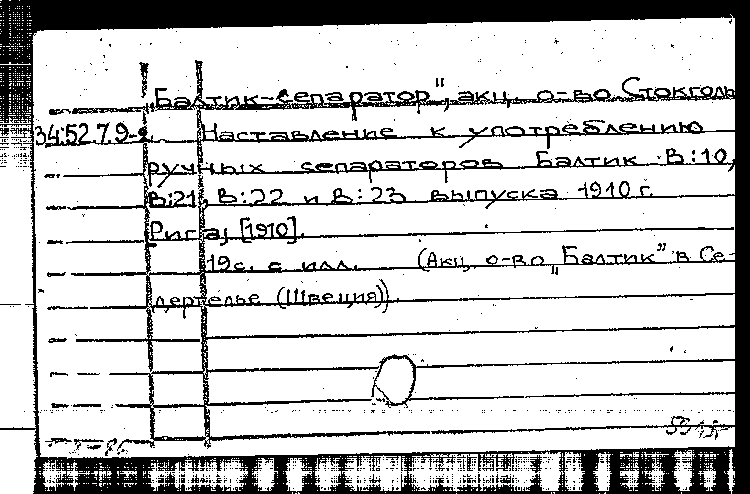 „Балтик-сепаратор", акц. о-во. Стокголь
34:52.7.9-2. Наставление к употреблению
ручных сепараторов Балтик В:10,
В:21, В:22 и В:23 выпуска 1910 г.
Рига, [1910].
19с. с илл. (Акц. о-во „Балтик" в Се-
дертелье (Швеция)).